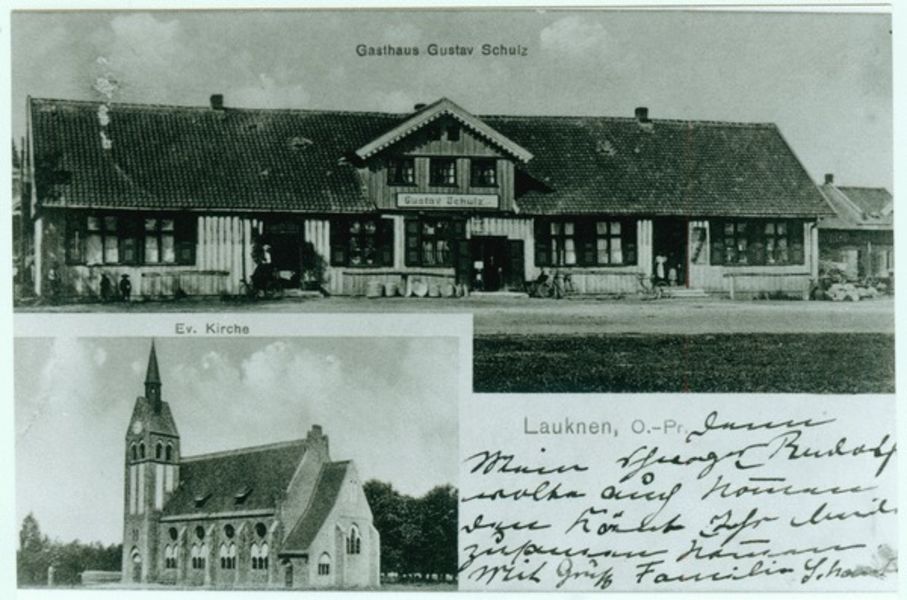 Gasthaus Gustav Schulz
Gustav Schulz
Ev. Kirche
Lauknen, O.-Pr.
denn
Mein Rudolf
wolte auch kommen
den Könt Ihr
zusamen kommen
Mit Grüß Familie